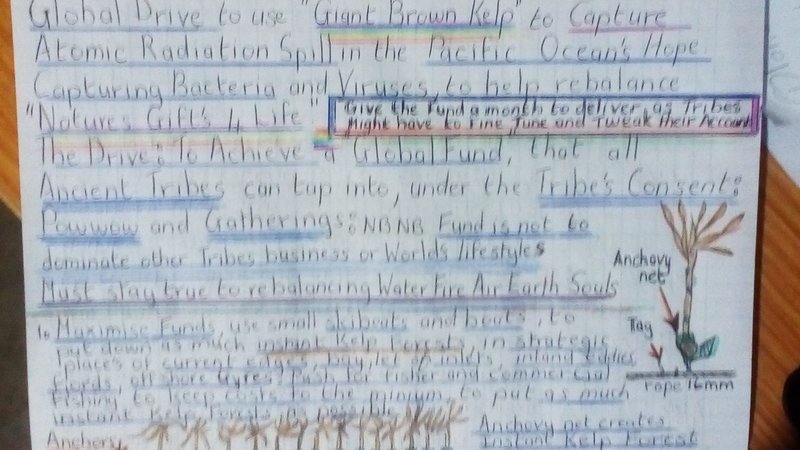 Global Drive to use "Giant Brown Kelp" to Capture
Atomic Radiation Spill in the Pacific Ocean's Hope
Capturing Bacteria and Viruses, to help rebalance
"Natures Gift's 4 Life"
"Give the Fund a month to deliver, as Tribes
Might have to Fine Tune and Tweak their Account
The Drive: To Achieve a Global Fund, that all
Ancient Tribes can tap into, under the Tribe's Consent:
Powwow and Gatherings: NB NB Fund is not to
dominate other Tribes business or Worlds lifestyles
Must stay true to rebalancing Water Fire Air Earth Souls
Anchovy
net
Tag
rope 16mm
1. Maximise Funds, use small skiboats and boats, to
put down as much instant Kelp Forests, in strategic
places of current edges, bay, inland eddies
Fiords, off shore Gyres: Push for Fisher and Commercial
Fishing to keep costs to the minium, to put as much
instant Kelp Forests as possible
Anchovy
Anchovy net creates
Instant Kelp Forest